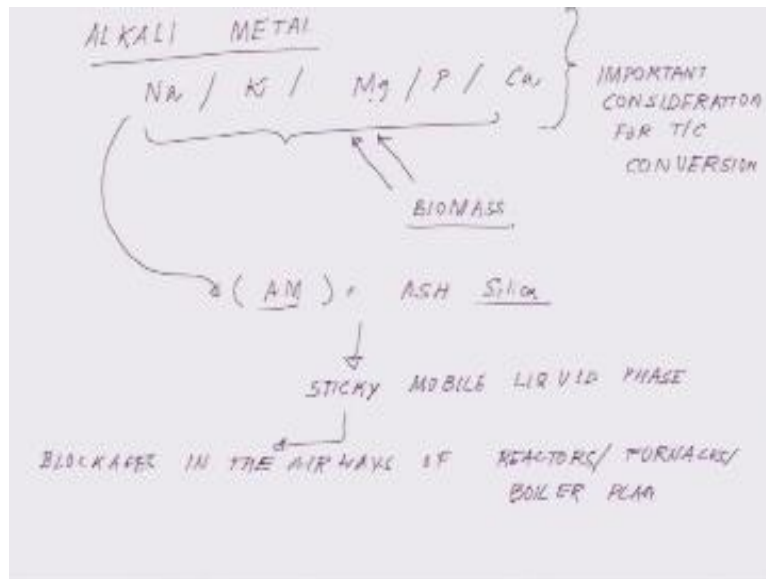 ALKALI METAL
Na / K / Mg / P / Ca,
IMPORTANT
CONSIDERATION
FOR T/C
CONVERSION
BIOMASS
(AM) + ASH Silica
STICKY MOBILE LIQUID PHASE
BLOCKAGES IN THE AIRWAYS OF REACTORS/ FURNACES/
BOILER PLAN